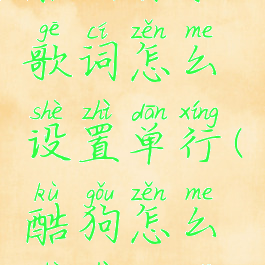 gē cí zěn me
歌词怎么
shè zhì dān xíng
设置单行(
kù gǒu zěn me
酷狗怎么